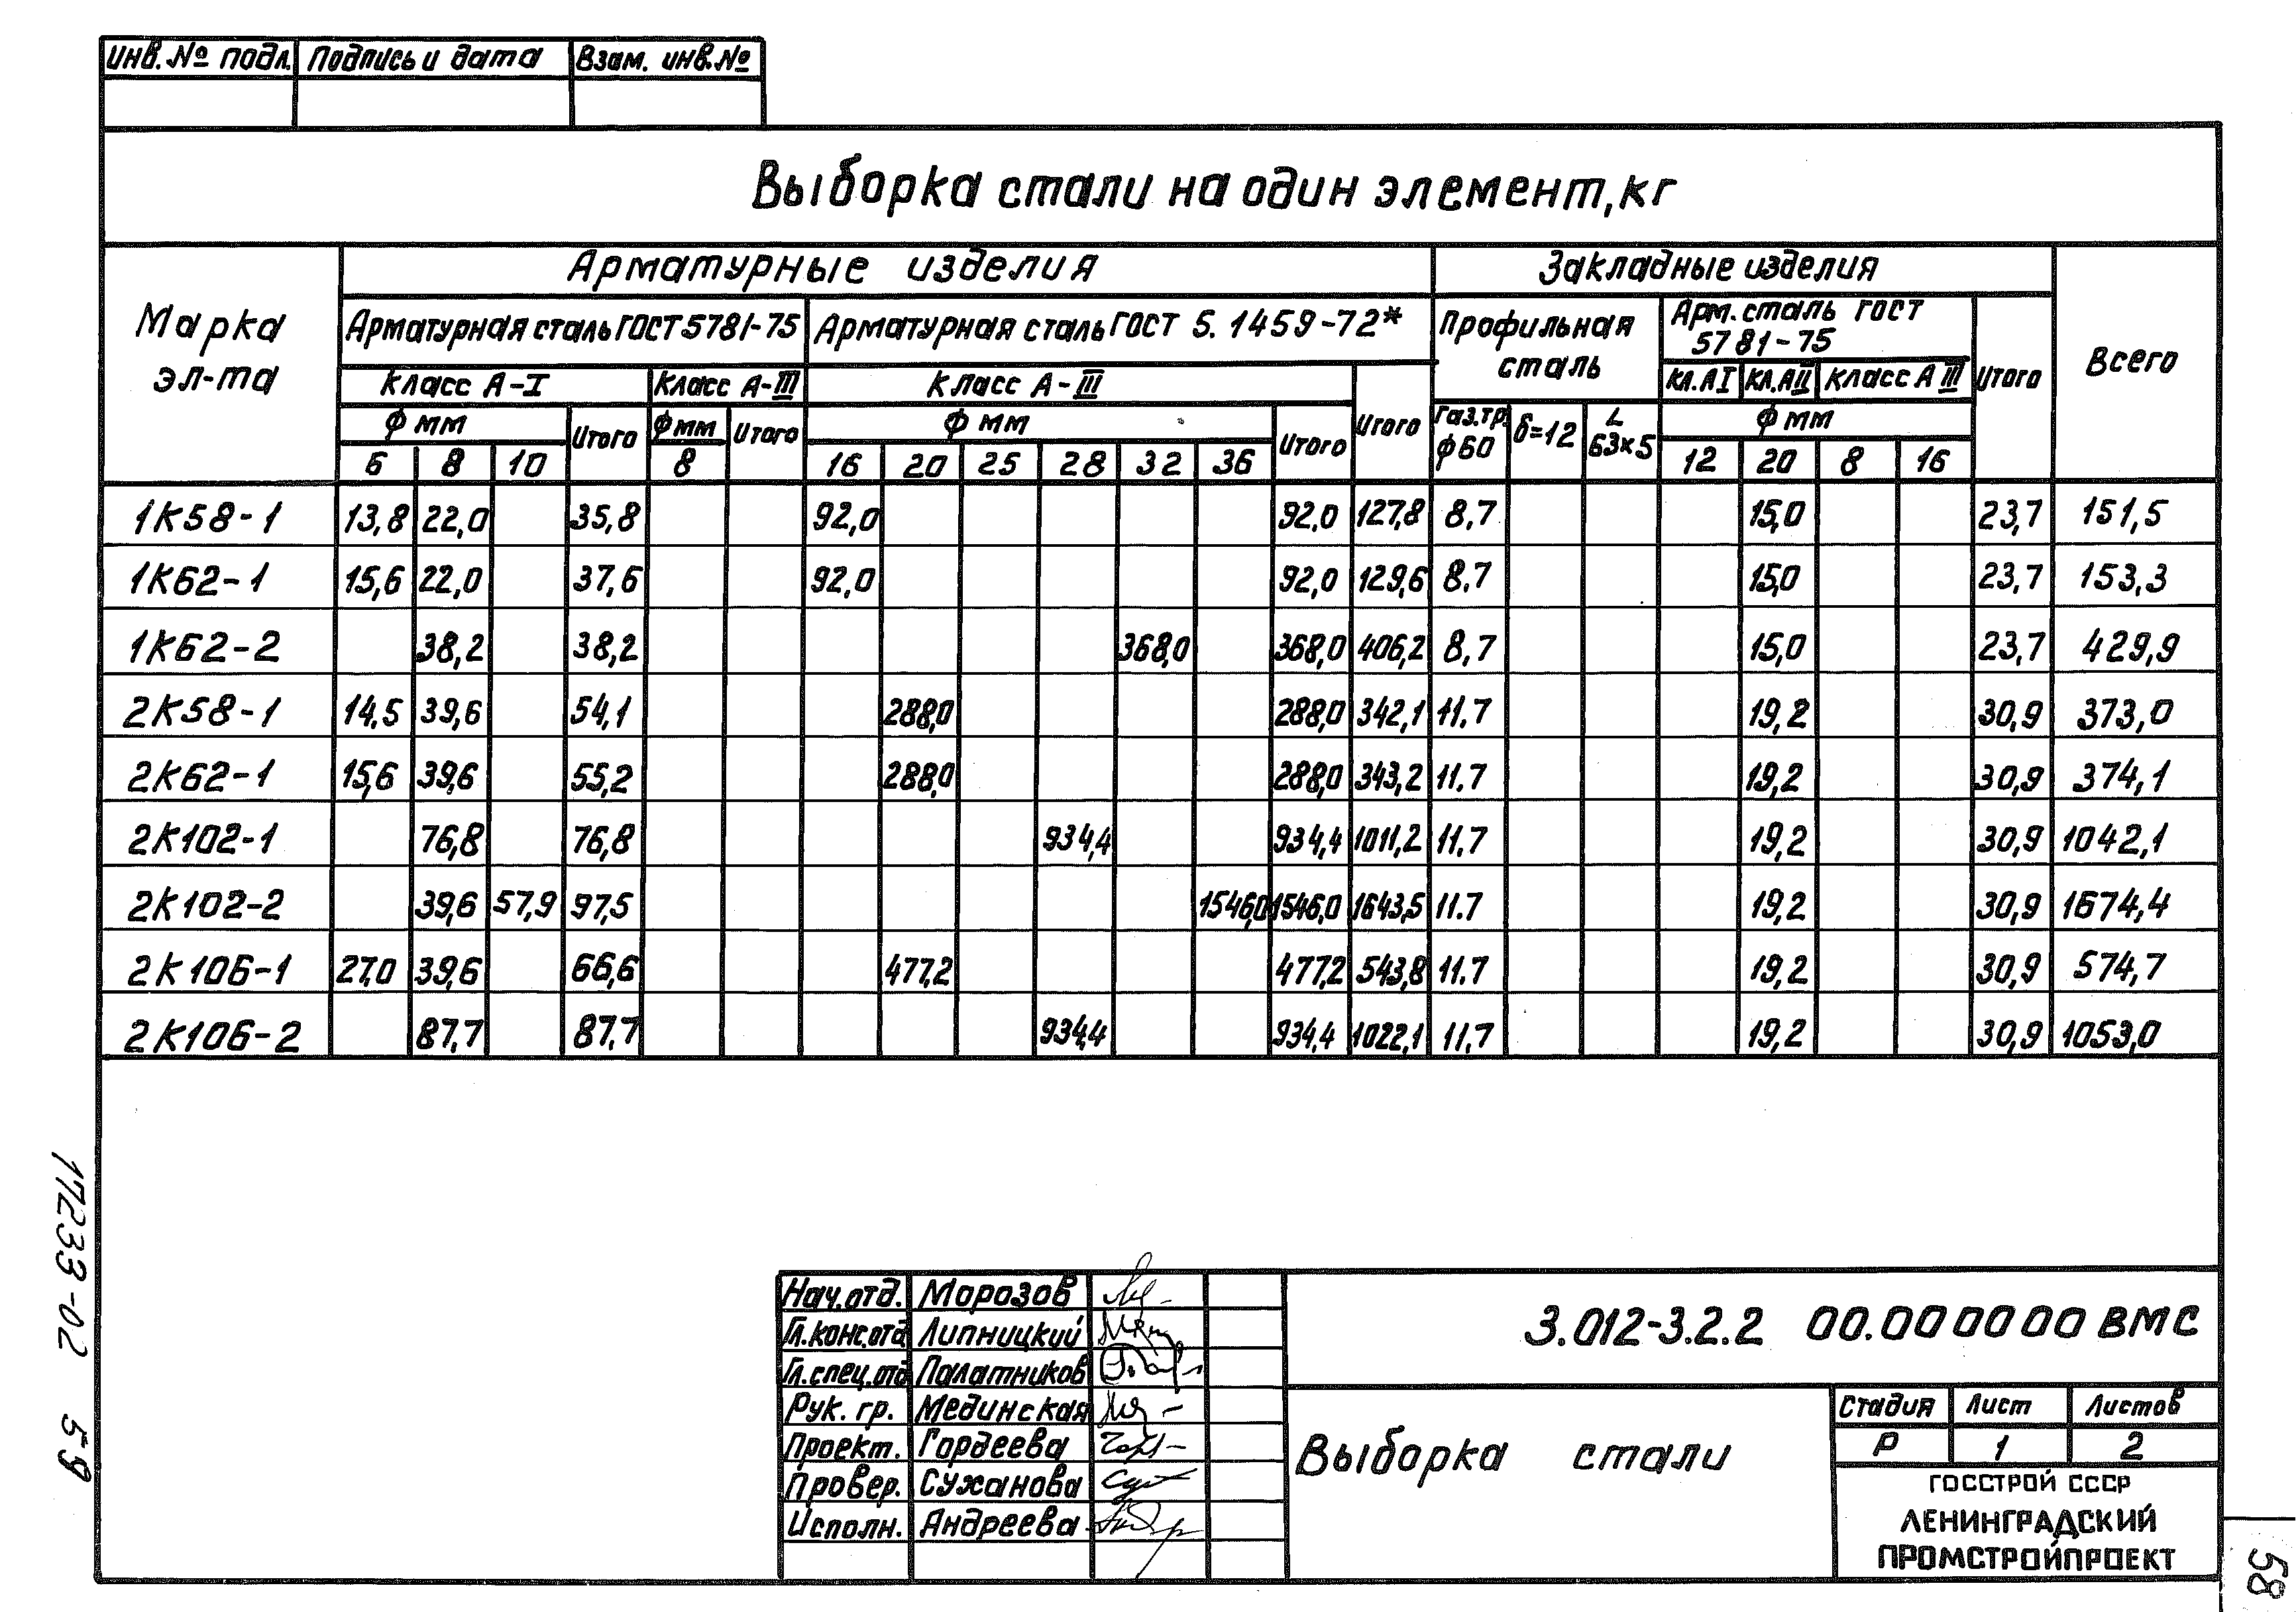 Инв.№ подл. Подпись и дата Взам. инв.№
Выборка стали на один элемент, кг
Марка эл-та
Арматурные изделия Закладные изделия Всего
Арматурная сталь ГОСТ 5781-75 Арматурная сталь ГОСТ 5.1459-72* Профильная сталь Арм. сталь ГОСТ 5781-75 Итого
класс А-I Класс А-III класс А-III Итого кл.АI кл.АII класс АIII
Ф мм Итого Ф мм Итого Ф мм Итого Газ.тр. ф60 δ=12 L 63×5 Ф мм
6 8 10 8 16 20 25 28 32 36 12 20 8 16
1К58-1 13,8 22,0 35,8 92,0 92,0 127,8 8,7 15,0 23,7 151,5
1К62-1 15,6 22,0 37,6 92,0 92,0 129,6 8,7 15,0 23,7 153,3
1К62-2 38,2 38,2 368,0 368,0 406,2 8,7 15,0 23,7 429,9
2К58-1 14,5 39,6 54,1 288,0 288,0 342,1 11.7 19,2 30,9 373,0
2К62-1 15,6 39,6 55,2 288,0 288,0 343,2 11.7 19,2 30,9 374,1
2К102-1 76,8 76,8 934,4 934,4 1011,2 11.7 19,2 30,9 1042,1
2К102-2 39,6 57,9 97,5 1546,0 1546,0 1643,5 11.7 19,2 30,9 1674,4
2К106-1 27,0 39,6 66,6 477,2 477,2 543,8 11.7 19,2 30,9 574,7
2К106-2 87,7 87,7 934,4 934,4 1022,1 11,7 19,2 30,9 1053,0
17233-02 59
Нач.отд. Морозов
Гл.конс.отд Липницкий
Гл.спец.отд Палатников
Рук. гр. Мединская
Проект. Гордеева
Провер. Сужанова
Исполн. Андреева
3.012-3.2.2 00.000000 ВМС
Выборка стали
Стадия Лист Листов
Р 1 2
ГОССТРОЙ СССР
ЛЕНИНГРАДСКИЙ
ПРОМСТРОЙПРОЕКТ
58